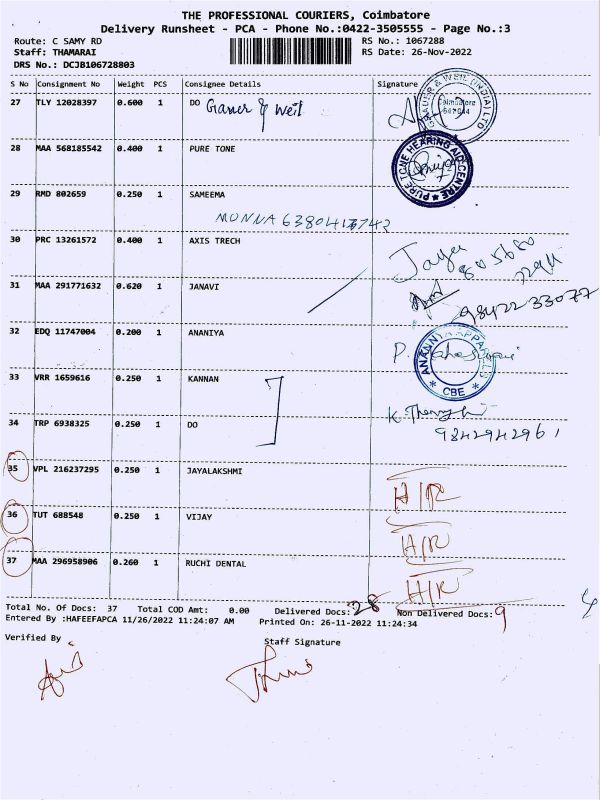 THE PROFESSIONAL COURIERS, Coimbatore
Delivery Runsheet - PCA - Phone No.:0422-3505555 - Page No.:3
Route: C SAMY RD RS No.: 1067288
Staff: THAMARAI RS Date: 26-Nov-2022
DRS No.: DCJB106728803
S No Consignment No Weight PCS Consignee Details Signature
27 TLY 12028397 0.600 1 DO Gauer & Weil
GAUER & WEIL (INDIA) LTD
Coimbatore
641 044
28 MAA 568185542 0.400 1 PURE TONE
PURE TONE HEARING AID CENTRE
29 RMD 802659 0.250 1 SAMEEMA
MONNA
30 PRC 13261572 0.400 1 AXIS TRECH
Jaya
31 MAA 291771632 0.620 1 JANAVI
9842233077
32 EDQ 11747004 0.200 1 ANANIYA
ANANNYA APPARELS
CBE
33 VRR 1659616 0.250 1 KANNAN
34 TRP 6938325 0.250 1 DO
9842942961
35 VPL 216237295 0.250 1 JAYALAKSHMI H/R
36 TUT 688548 0.250 1 VIJAY H/R
37 MAA 296958906 0.260 1 RUCHI DENTAL H/R
Total No. Of Docs: 37 Total COD Amt: 0.00 Delivered Docs: 28 Non Delivered Docs: 9
Entered By :HAFEEFAPCA 11/26/2022 11:24:07 AM Printed On: 26-11-2022 11:24:34
Verified By Staff Signature